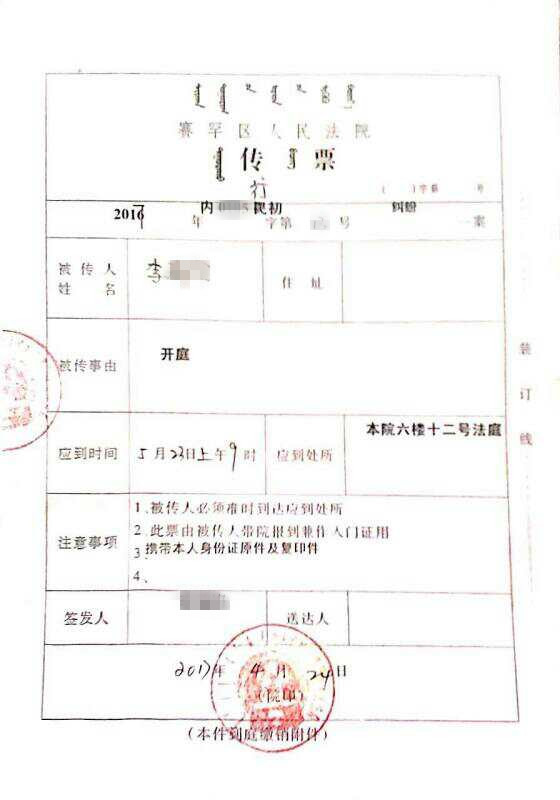 赛罕区人民法院
传票
( )字第 号
2017年 内 民初字第 号 纠纷一案
被传人姓名 李 住址
被传事由 开庭
应到时间 5月23日上午9时 应到处所 本院六楼十二号法庭
注意事项
1、被传人必须准时到达应到处所
2、此票由被传人带院报到兼作入门证用
3、携带本人身份证原件及复印件
4、
签发人 送达人
2017年4月24日
(院印)
(本件到庭缴销附件)
装订线